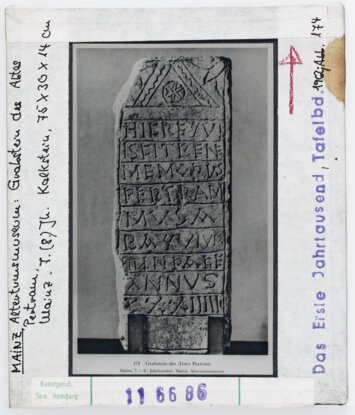 MAINZ, Altertumsmuseum: Grabstein des Abtes
Pertram,
Mainz. 7. (8) Jh. Kalkstein, 76 x 30 x 14 cm
HIC REQVI
ISCIT BENE
MEMORIVS
PERTRAM
MVS A
IN PACE
ANNVS
174 Grabstein des Abtes Pertram
Mainz, 7. / 8. Jahrhundert Mainz, Altertumsmuseum
Das Erste Jahrtausend, Tafelbd. 1962, Abb. 174
Kunstgesch.
Sem Hamburg
11 66 86